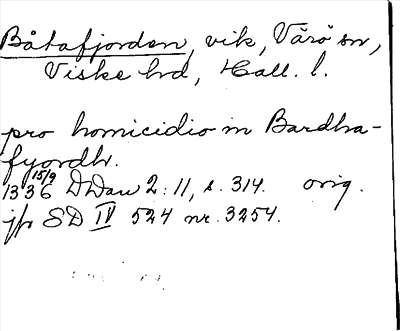 Båtafjorden, vik, Värö sn,
Viske hd, Hall. l.
pro homicidio in Bardha-
fyordh.
1336 15/9 DDan 2:11, s. 314. orig.
jfr SD IV 524 nr. 3254.